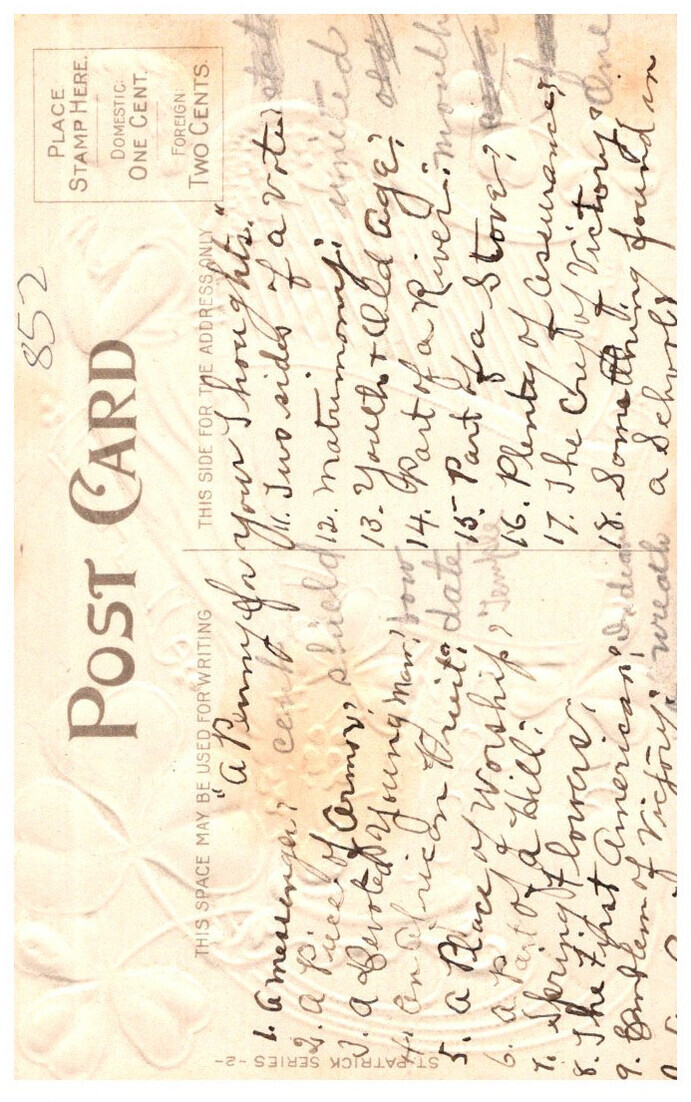 852
POST CARD
THIS SPACE MAY BE USED FOR WRITING
THIS SIDE FOR THE ADDRESS ONLY
PLACE
STAMP HERE.
DOMESTIC:
ONE CENT.
FOREIGN:
TWO CENTS.
ST. PATRICK SERIES -2-
"A Penny for your Thoughts."
1. A messenger? cent
2. A Piece of Armor? shield
3. A Devoted Young Man?
4. An African Fruit? date
5. A Place of Worship? Temple
6. A Part of a Hill?
7. Spring Flowers?
8. The First American? Indian
9. Emblem of Victory? wreath
11. Two sides of a vote?
12. Matrimony? united
13. Youth & Old Age?
14. Part of a River? mouth
15. Part of a Stove?
16. Plenty of assurance?
17. The of Victory?
18. Something found in
a School?